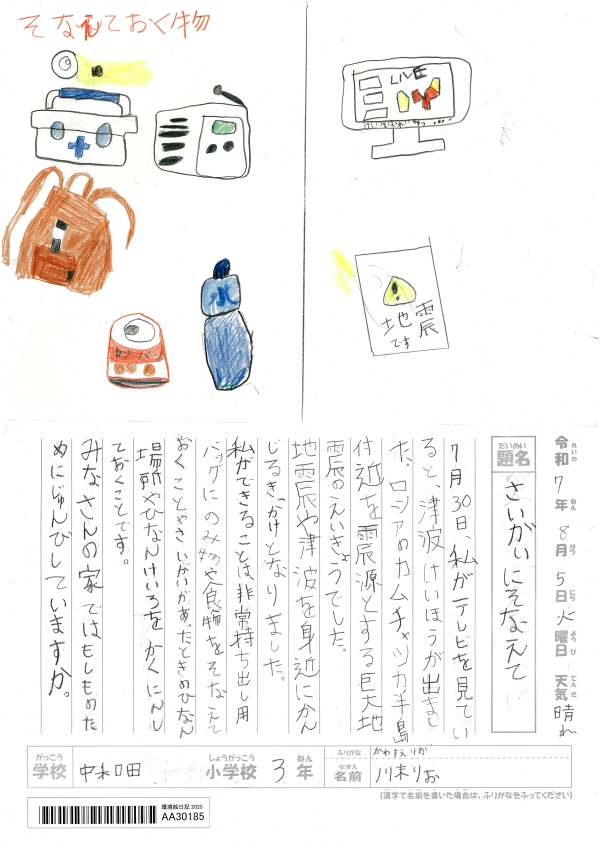 そなえておく物
LIVE
水
カンパン
地震
です
令和7年8月5日火曜日 天気晴れ
れいわ ねん がつ にち ようび てんき
だいめい
題名 さいがいにそなえて
7月30日、私がテレビを見てい
ると、津波けいほうが出まし
た。ロシアのカムチャツカ半島
付近を震源とする巨大地
震のえいきょうでした。
地震や津波を身近にかん
じるきっかけとなりました。
私ができることは非常持ち出し用
バッグにのみ物や食物をそなえて
おくことやさいがいがあったときのひなん
場所やひなんけいろをかくにんし
ておくことです。
みなさんの家ではもしものた
めにじゅんびしていますか。
がっこう しょうがっこう ねん ふりがな かわすえりお
学校 中和田 小学校 3年 なまえ 名前 川末りお
(漢字で名前を書いた場合は、ふりがなをふってください)
環境絵日記 2025
AA30185